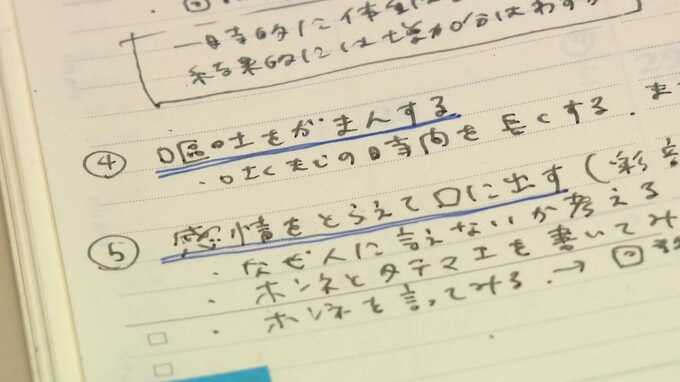 一時的に体
結果的には
④ 嘔吐をがまんする
・吐くまでの時間を長くする．ま
⑤ 感情をとらえて口に出す（
・なぜ人に言えないか考える
・ホンネとタテマエを書いてみ
・ホンネを言ってみる．→